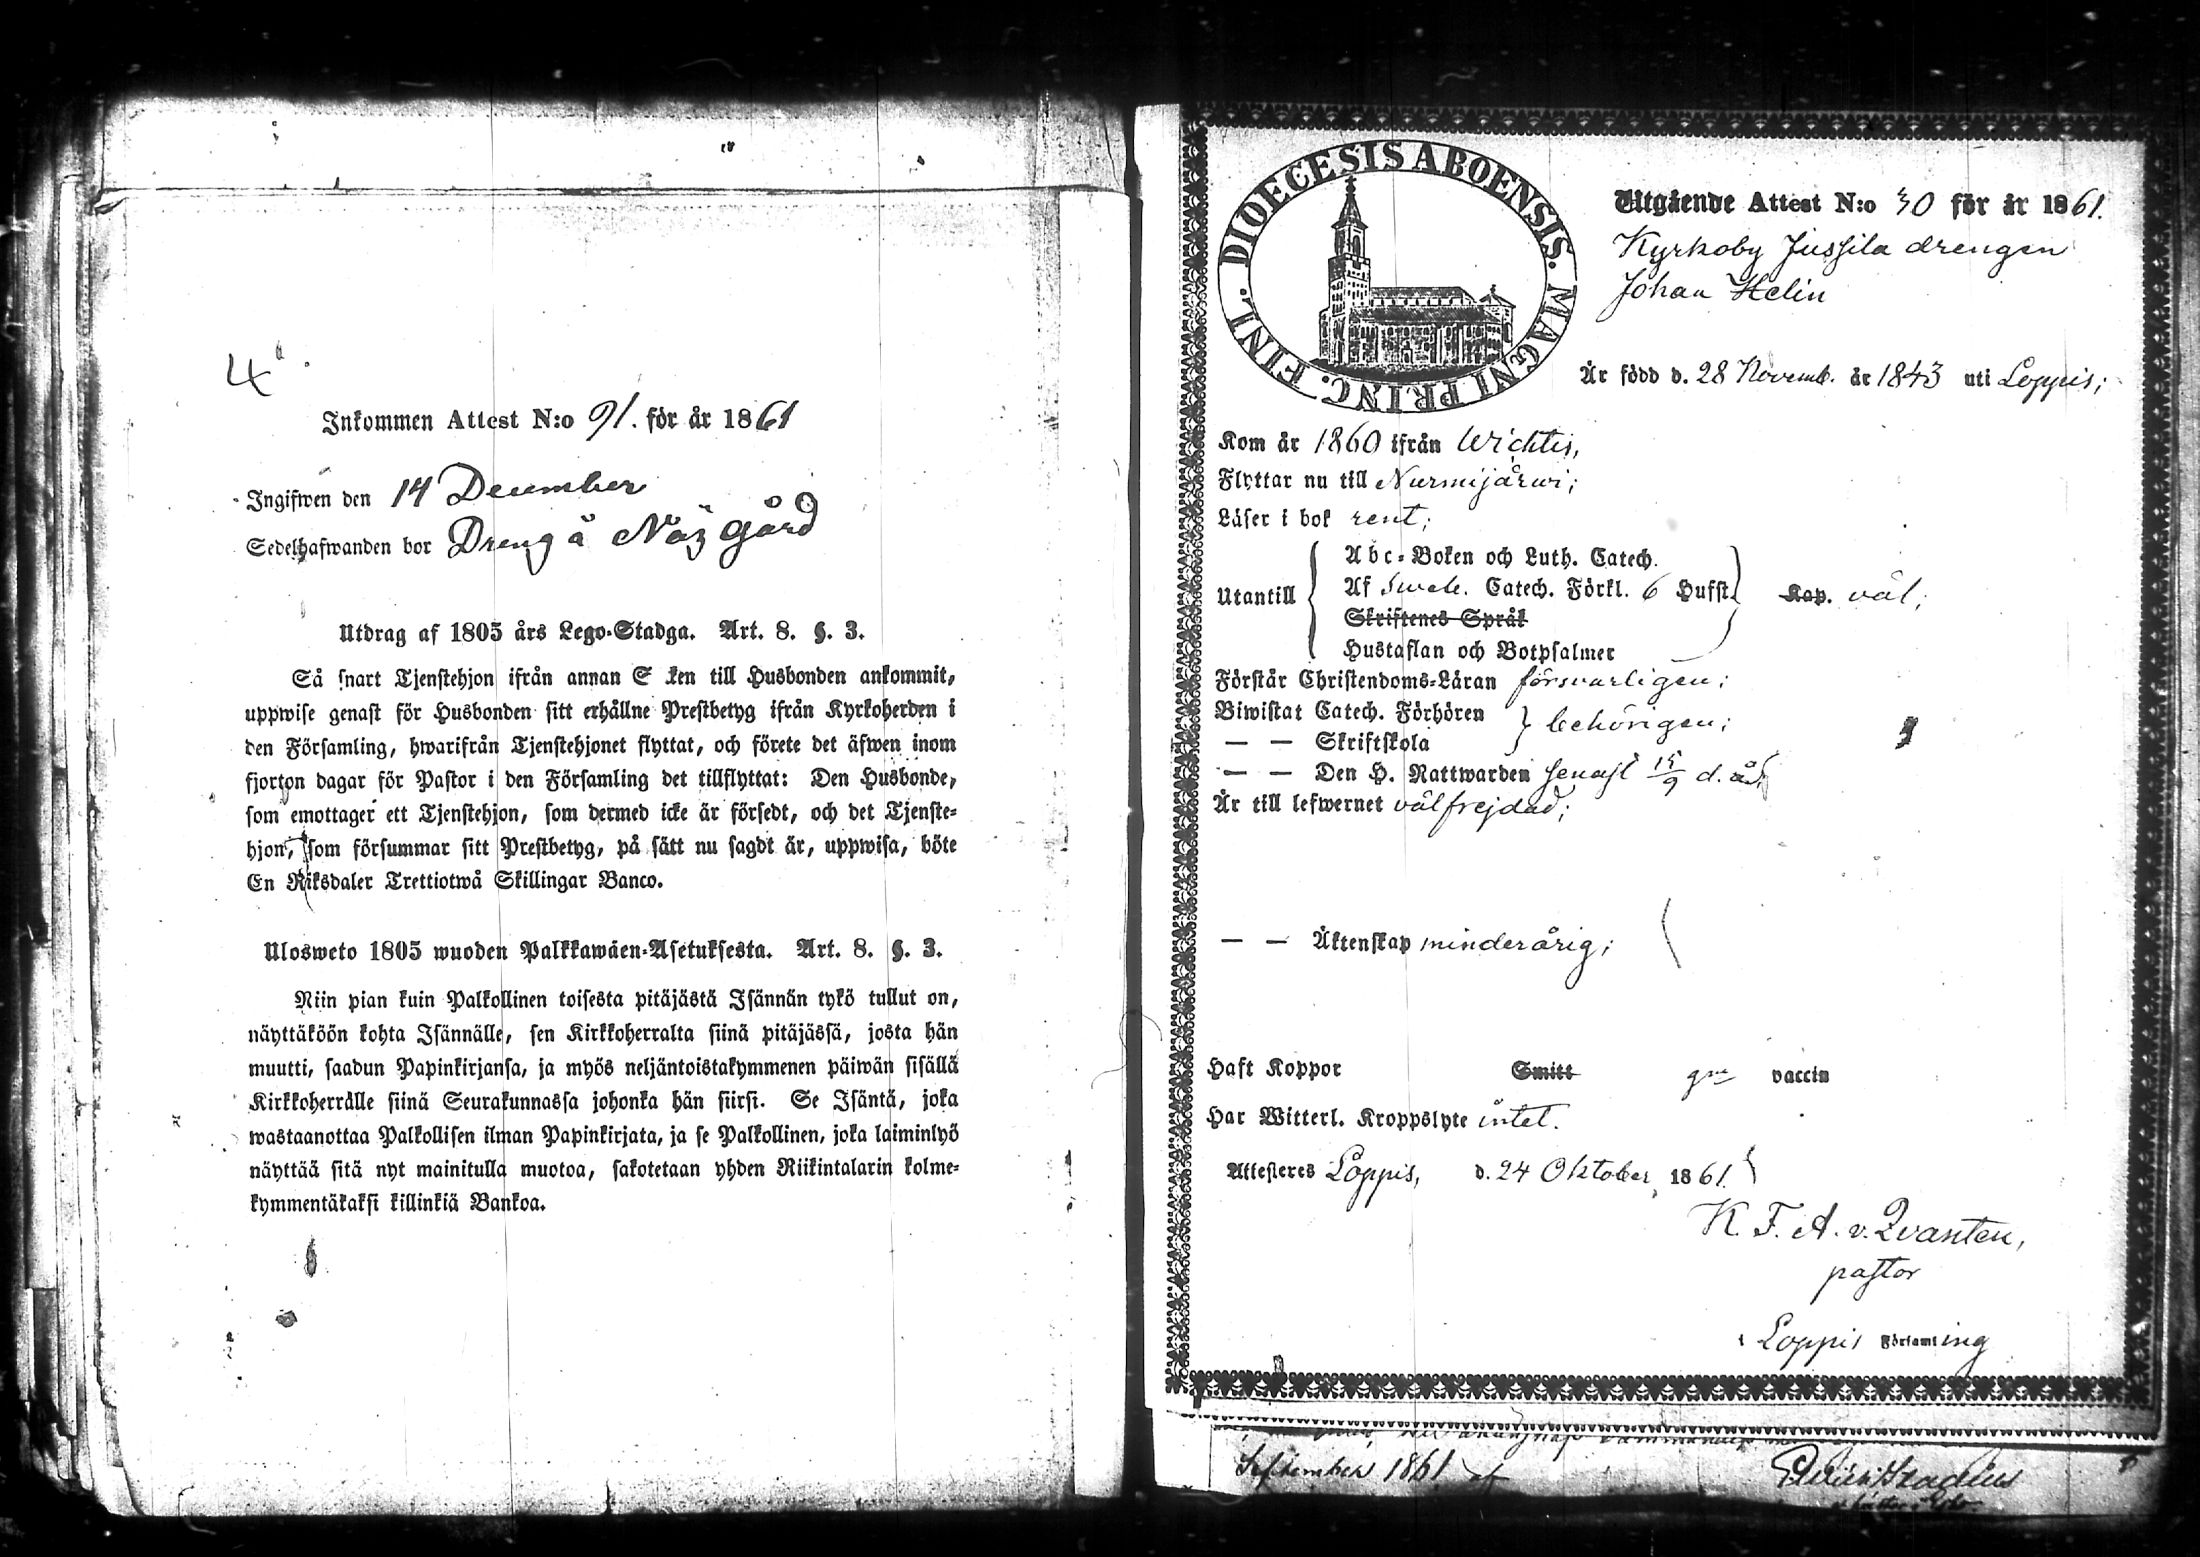 4
Inkommen Attest N:o 91. för år 1861
Ingifwen den 14 December
Sedelhafwanden bor Dreng å Näs gård
Utdrag af 1805 års Lego-Stadga. Art. 8. §. 3.
Så snart Tjenstehjon ifrån annan S ken till Husbonden ankommit,
uppwise genast för Husbonden sitt erhållne Prestbetyg ifrån Kyrkoherden i
den Församling, hwarifrån Tjenstehjonet flyttat, och förete det äfwen inom
fjorton dagar för Pastor i den Församling det tillflyttat: Den Husbonde,
som emottager ett Tjenstehjon, som dermed icke är försedt, och det Tjenste-
hjon, som försummar sitt Prestbetyg, på sätt nu sagdt är, uppwisa, böte
En Riksdaler Trettiotwå Skillingar Banco.
Ulosweto 1805 wuoden Palkkawäen-Asetuksesta. Art. 8. §. 3.
Niin pian kuin Palkollinen toisesta pitäjästä Isännän tykö tullut on,
näyttäköön kohta Isännälle, sen Kirkkoherralta siinä pitäjässä, josta hän
muutti, saadun Papinkirjansa, ja myös neljäntoistakymmenen päiwän sisällä
Kirkkoherrälle siinä Seurakunnassa johonka hän siirsi. Se Isäntä, joka
wastaanottaa Palkollisen ilman Papinkirjata, ja se Palkollinen, joka laiminlyö
näyttää sitä nyt mainitulla muotoa, sakotetaan yhden Riikintalarin kolme-
kymmentäkaksi killinkiä Bankoa.
DIOECESIS ABOENSIS. MAGNI PRINC. FINL.
Utgående Attest N:o 30 för år 1861.
Kyrkoby Jussila drengen
Johan Helin
Är född d. 28 Novemb. år 1843 uti Loppis;
Kom år 1860 ifrån Wichtis,
Flyttar nu till Nurmijärwi;
Läser i bok rent;
Abc-Boken och Luth. Catech.
Utantill Af Sweb. Catech. Förkl. 6 Hufst. Kap. väl;
Skriftenes Språk
Hustaflan och Botpsalmer
Förstår Christendoms-Läran försvarligen;
Biwistat Catech. Förhören behörigen;
— — Skriftskola
— — Den H. Nattwarden senast 15/9 d. år;
Är till lefwernet välfrejdad;
— — Äktenskap minderårig;
Haft Koppor Smitt gm vaccin
Har Witterl. Kroppslyte intet.
Attesteres Loppis, d. 24 Oktober 1861.
K. F. A. v. Qvanten,
pastor
i Loppis Församling
September 1861 af